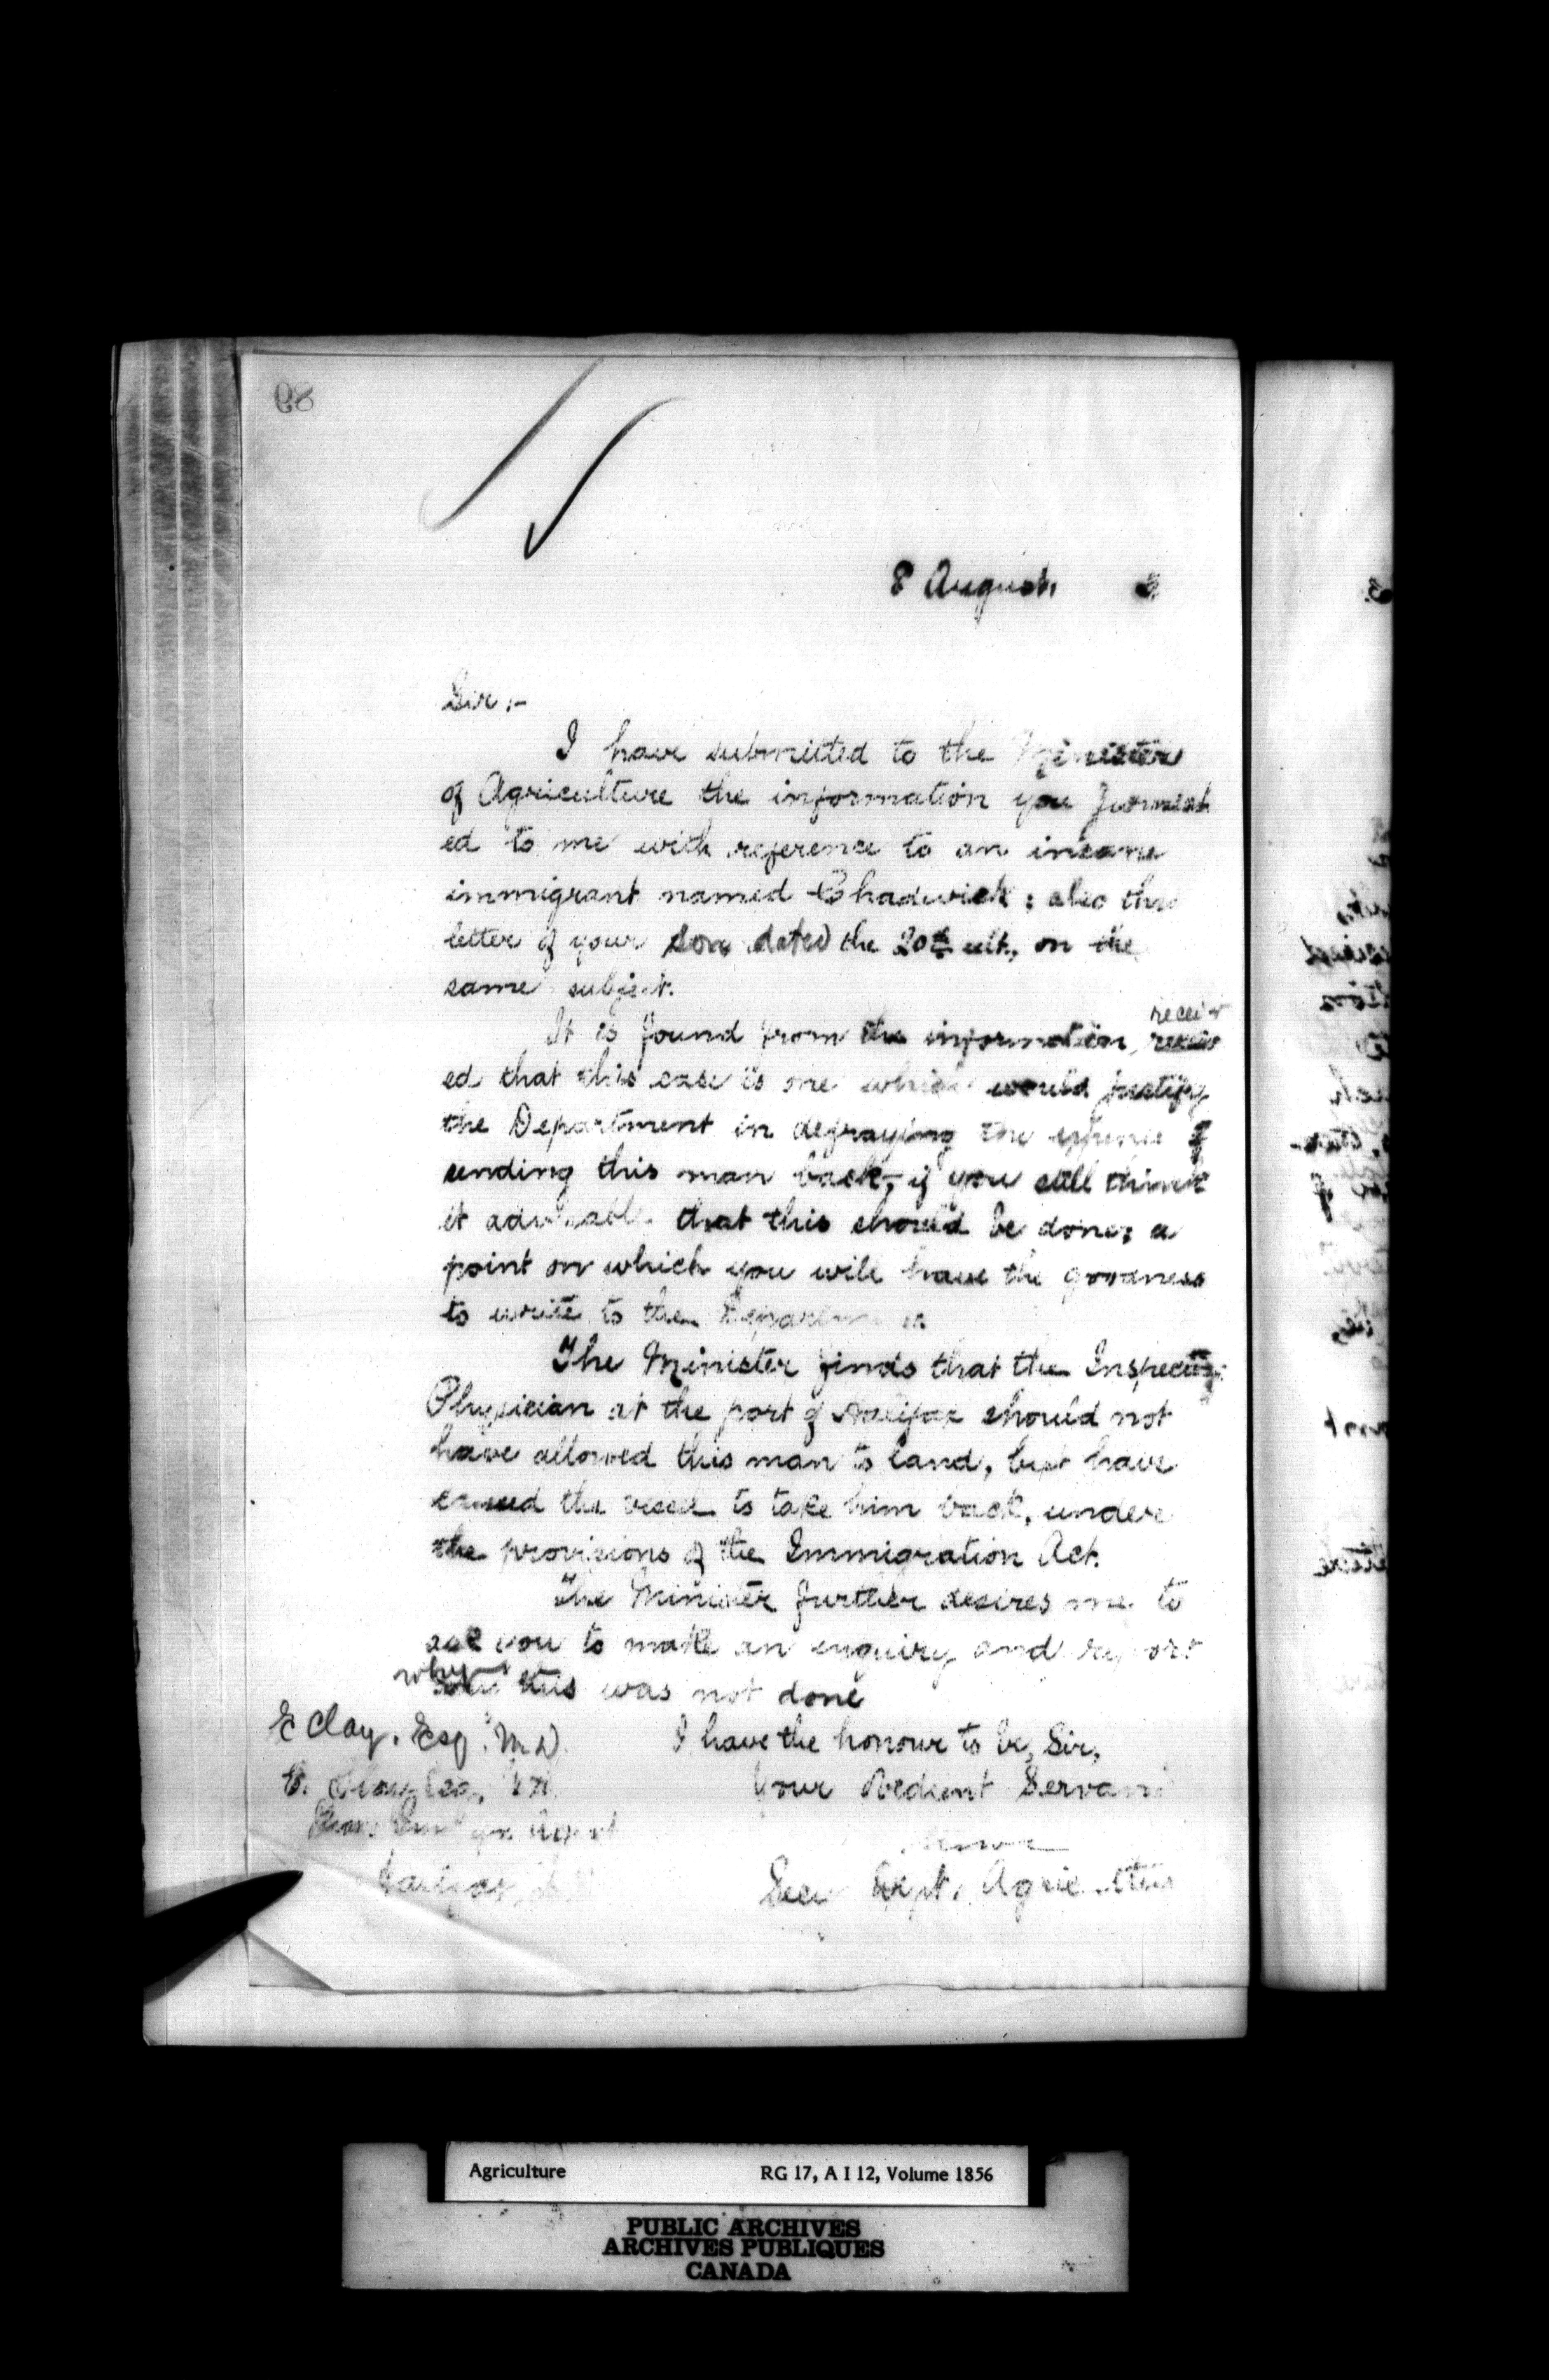 89
8 August, 3
Sir :-
I have submitted to the Minister
of Agriculture the information you furnish
ed to me with reference to an insane
immigrant named Chadwick : also the
letter of your son dated the 20th ult., on the
same subject.
It is found from the information receiv
ed that this case is one which would justify
the Department in defraying the expense of
sending this man back, if you still think
it advisable that this should be done; a
point on which you will have the goodness
to write to the Department
The Minister finds that the Inspecting
Physician at the port of Halifax should not
have allowed this man to land, but have
caused the vessel to take him back, under
the provisions of the Immigration Act.
The Minister further desires me to
ask you to make an enquiry and report
why this was not done
E Clay. Esq. M.D. I have the honour to be, Sir,
E. Clay Esq, Your Obedient Servant
Agent
Halifax, Sec Dept. Agriculture
Agriculture RG 17, A I 12, Volume 1856
PUBLIC ARCHIVES
ARCHIVES PUBLIQUES
CANADA